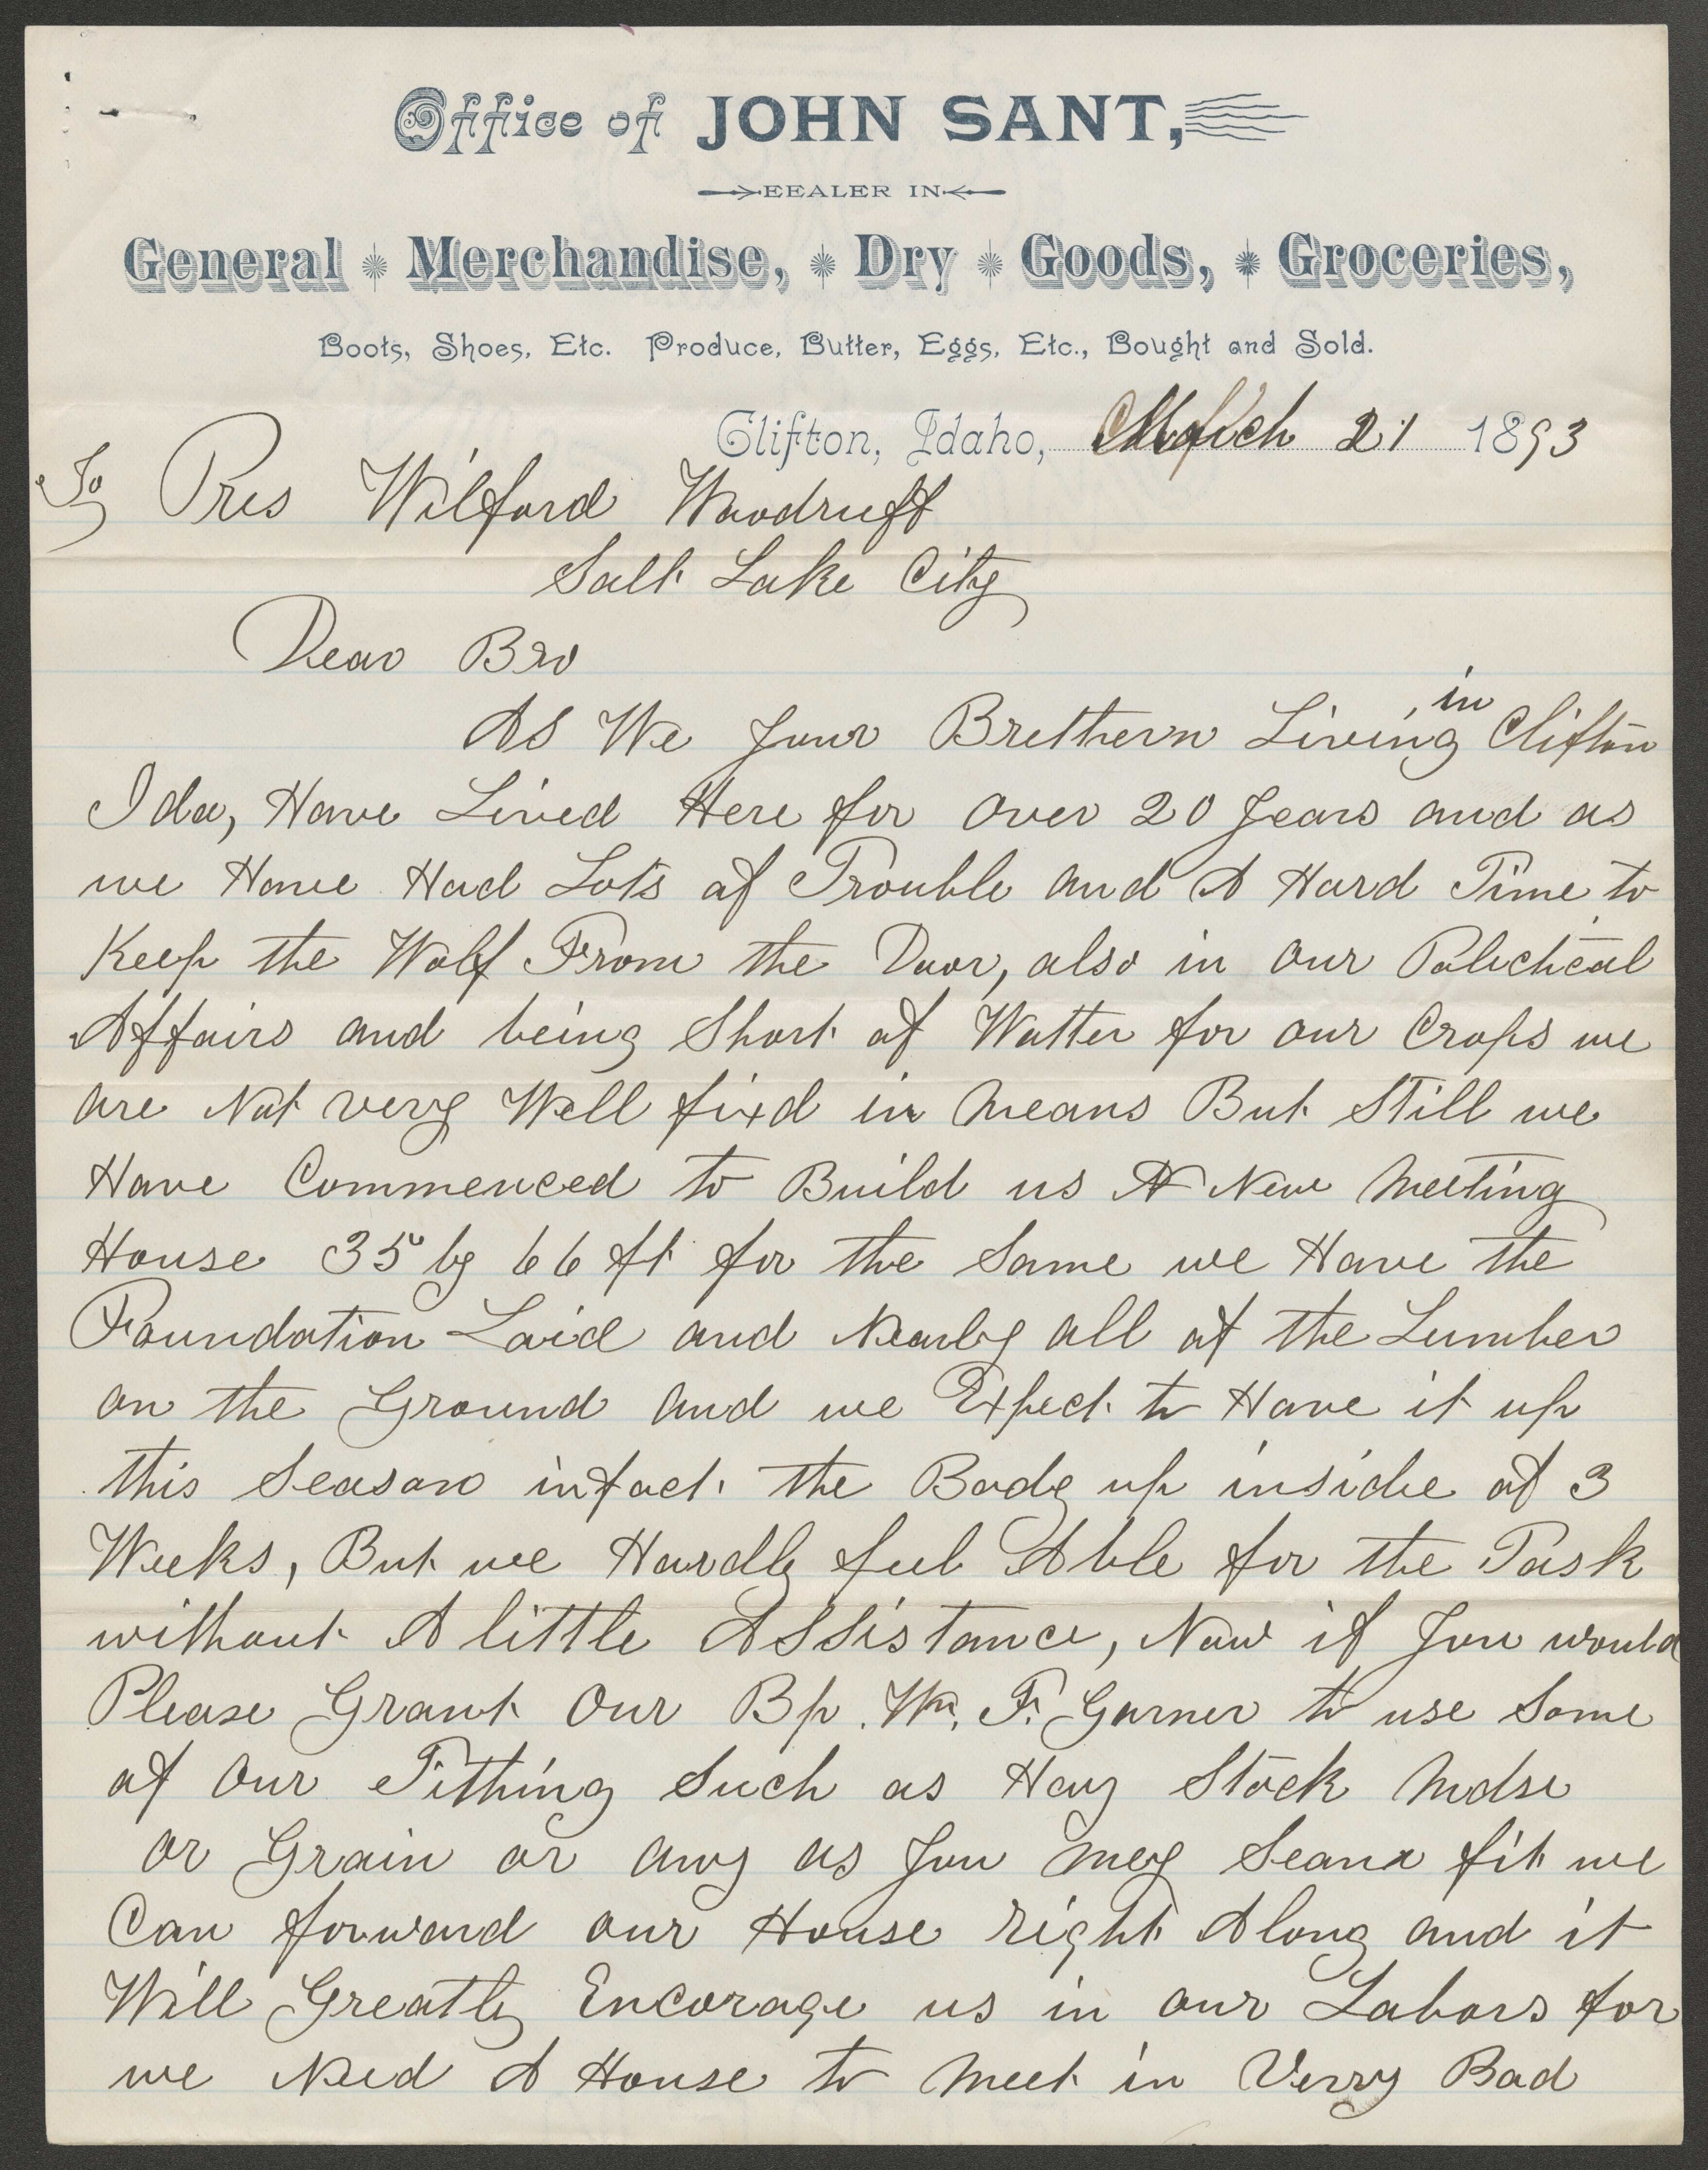 Office of JOHN SANT,
EEALER IN
General Merchandise, Dry Goods, Groceries,
Boots, Shoes, Etc. Produce, Butter, Eggs, Etc., Bought and Sold.
Clifton, Idaho, March 21 1893
To Pres Wilford Woodruff
Salt Lake City
Dear Bro
in
As We Your Brethern Living Clifton
Ida, Have Lived Here for over 20 Years and as
we Have Had Lots of Trouble and A Hard Time to
Keep the Wolf From the Door, also in our Polictical
Affairs and being Short of Watter for our Crops we
are Not very Well fixd in means But Still we
Have Commenced to Build us A New Meeting
House 35 by 66 ft for the Same we Have the
Foundation Laid and Nearly all of the Lumber
on the Ground and we Expect to Have it up
this Season infact the Body up inside of 3
Weeks, But we Hardly feel Able for the Task
without A little Assistance, Now if You would
Please Grant Our Bp. Wm. F. Garner to use Some
of Our Tithing Such as Hay Stock Mdse
or Grain or any as You mey fit we
Can forward our House right Along and it
Will Greatly Encorage us in our Labors for
we Need A House to Meet in Verry Bad